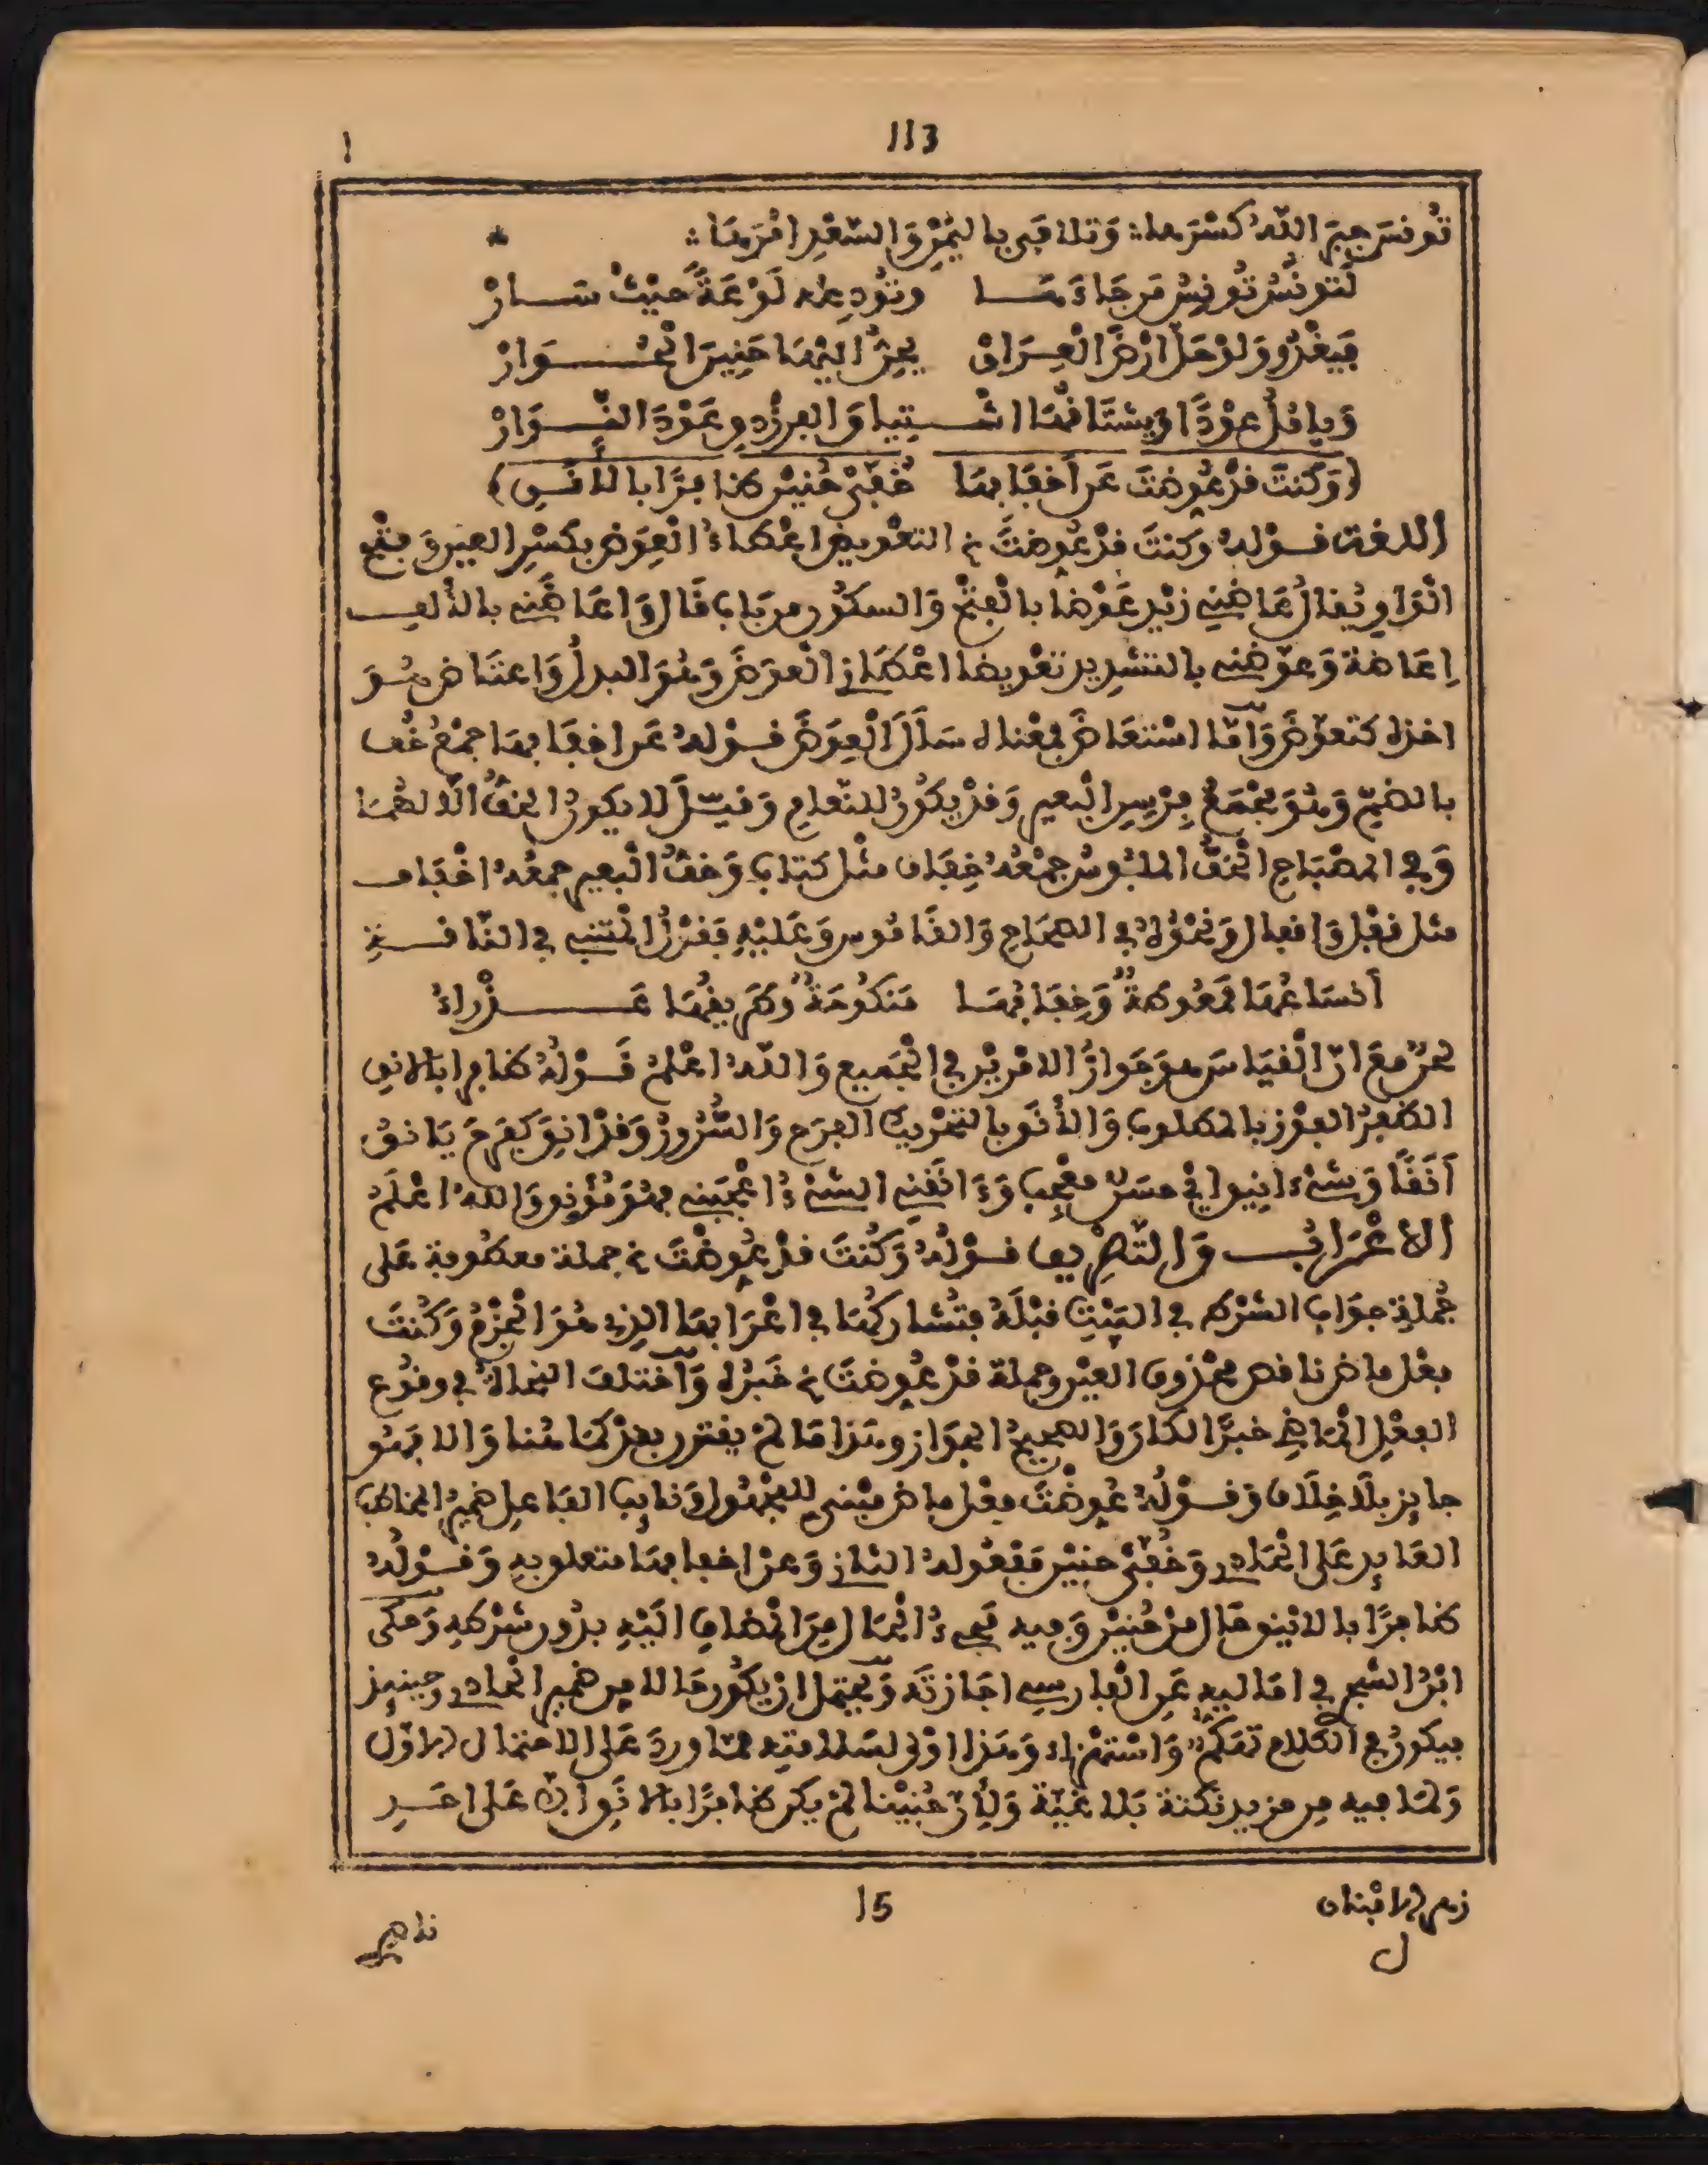 113
تُونسَ جبَرَ اللّٰهُ كَسْرَها :: وَتلافَى باليُمْنِ وَالسّعْدِ امْرَهَا ::
لَتونسُ تُونِسُ مَن جَاءَهَا وتُودِعه لَوْعَةً حَيْثُ سَارْ
فَيَغْدُو وَلوْ حَلَّ ارْضَ الْعِرَاق يحِنُّ اليْهَا حَنِينَ الْحُوَارْ
وَيامُلُ عوْدًا ويشتَاقُهَا اشْتِياقَ الفرزْدق عَوْدَ النَّوَارْ
(وَكنتَ قدْ عُوِضتَ عَن أَخفَافِهَا خُفَّيْ حُنيْن ظافرًا بالأَنَسِ)
اللغة قوْلهُ وكنتَ قدْ عُوِضتَ الخ التعْويض اعْطاءُ الْعِوَض بكسْرِ العين وَفتْحِ
الْوَاو يُقالُ عَاضَني زيْد عَوْضا بالْفتْحِ وَالسكُون من بَاب قَال وَاعَاضَني بالألِف
اِعَاضة وَعوّضني بالتشْدِيد تعْويضا اعْطَانِي الْعوَضَ وَهُوَ البدلُ وَاعتَاض هُوَ
اخذه كتعوّضَ وَامّا اسْتعَاضَ فمعْناه سَأَلَ الْعِوَضَ قوْلهُ عَن اخفَافِهَا جمْعُ خُف
بالضمِّ وَهُوَ مجْمَعُ فِرْسِنِ الْبعيرِ وَقدْ يكوُن للنّعامِ وَقيل لا يكون الخفُّ الّا لهُمَا
وَفِي المصْبَاحِ الْخفُّ الملبُوسُ جمْعُهُ خِفَاف مثل كتاب وَخفُّ الْبعيرِ جمعُهُ اخْفَاف
مثل قفْل وَاقفال وَنحْوُهُ فِي الصّحَاحِ وَالقَامُوس وَعَلَيْهِ فَقوْلُ المتنبي في النّاقَةِ
أَنسَاعُهَا ممْغُوطةٌ وَخِفَافُهَا مَنكُوحَةٌ وَطَريقُهَا عَذْرَاءُ
لحْنٌ معَ انّ الْقيَاسَ هوَ جَوَازُ الامْريْن في الْجَميع وَاللّٰهُ اعْلمُ قَوْلهُ ظافرا بالانق
الظفرُ الفوْز بالمطلوب وَالأنَق بالتحْريك الفرَح وَالسُّرُورُ وَقدْ انِقَ كفرِحَ يَانقُ
أَنَقًا وَشيْءٌ انِيق اي حسَنٌ معْجِب وَءَانَقَنِي الشيْءُ اعْجَبَنِي فهُوَ مُؤْنِق وَاللهُ اعْلَمُ
الاعْرَابُ وَالتّصْرِيف قوْلُهُ وَكُنتَ قدْ عُوِضْتَ الخ جملة معطوفة عَلى
جُملةِ جوَاب الشرْطِ في البَيْتِ قبْلَهُ فتُشاركُهَا في اعْرَابهَا الذِي هُوَ الْجَزْمُ وَكُنتَ
فعْل ماض ناقص محْذوف العيْن وجملة قدْ عُوِضتَ الخ خَبَرُه وَاخْتلفَ النحاةُ في وقوُع
الفعْلِ الْمَاضِي خبرًا لكَانَ وَالصحِيحُ الجوَاز وهَذا مَا لمْ يقترن بقدْ كَمَا هُنا وَالا فهُو
جايز بلَا خِلَاف وَقوْلُهُ عُوِضْتَ فعْل ماض مبْني للمجْهُول وَنايِب الفاعل ضمِيرُ المخاطَب
العَايِد عَلى الْحَادِي وَخُفّيْ حنيْن مفعُوله الثانِي وَعنْ اخفافهَا متعلق بهِ وَقوْلُهُ
ظافِرًا بالانْيَق حَال مِنْ حُنيْن وَفيه مجيءُ الْحَال مِنَ الْمضَاف الَيْهِ بدُون شرْطِهِ وَحكَى
ابْنُ الشجَرِي في امَاليه عَنِ الْفارسِي اجَازتَهُ وَيحْتمل انْ يكُون حَالا مِن ضَمير الْحادِي وحينيذ
فيكون في الكلام تهكّمٌ وَاسْتهْزَاء وَهَذا اوْلى لسَلامتِه ممّا ورد عَلى الاحْتمال الاوّل
وَلمَا فيه مِن مزيد نكْتة بَلاغيّة وَلِأنّ حُنيْنا لمْ يكن ظافرًا بالانَقِ ابدًا عَلى احَدِ
زهر الافْنان
15
ل
ناصر